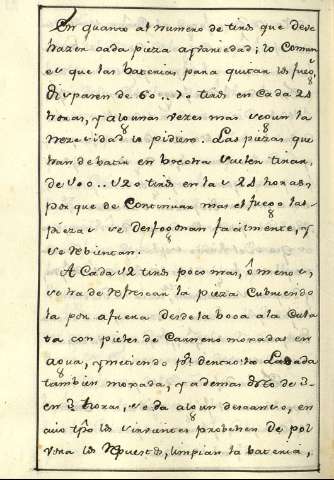 En quanto al numero de tiros que deve
hazer cada pieza ay variedad; lo Comun
es que las baterias para quitar los fuegos,
disparen de 60.. 70 tiros en cada 24
horas, y algunas vezes mas segun la
nezesidad lo pidiere. Las piezas que
han de batir en brecha suelen tirar,
de 100.. 120 tiros en las 24 horas,
por que de Continuar mas el fuego las
piezas se desfogonan facilmente, y
se rebientan.
A Cada 12 tiros poco mas, ò menos,
se ha de refrescar la pieza Cubriendo
la por afuera desde la boca a la Cula
ta con pieles de Carnero mojadas en
agua, y metiendo pr. dentro la Lanada
tambien mojada, y ademas desto de 3-
en 3 horas, se da algun descanso, en
cuio tpo los sirvientes provehen de pol
vora los Repuestos, limpian la bateria,